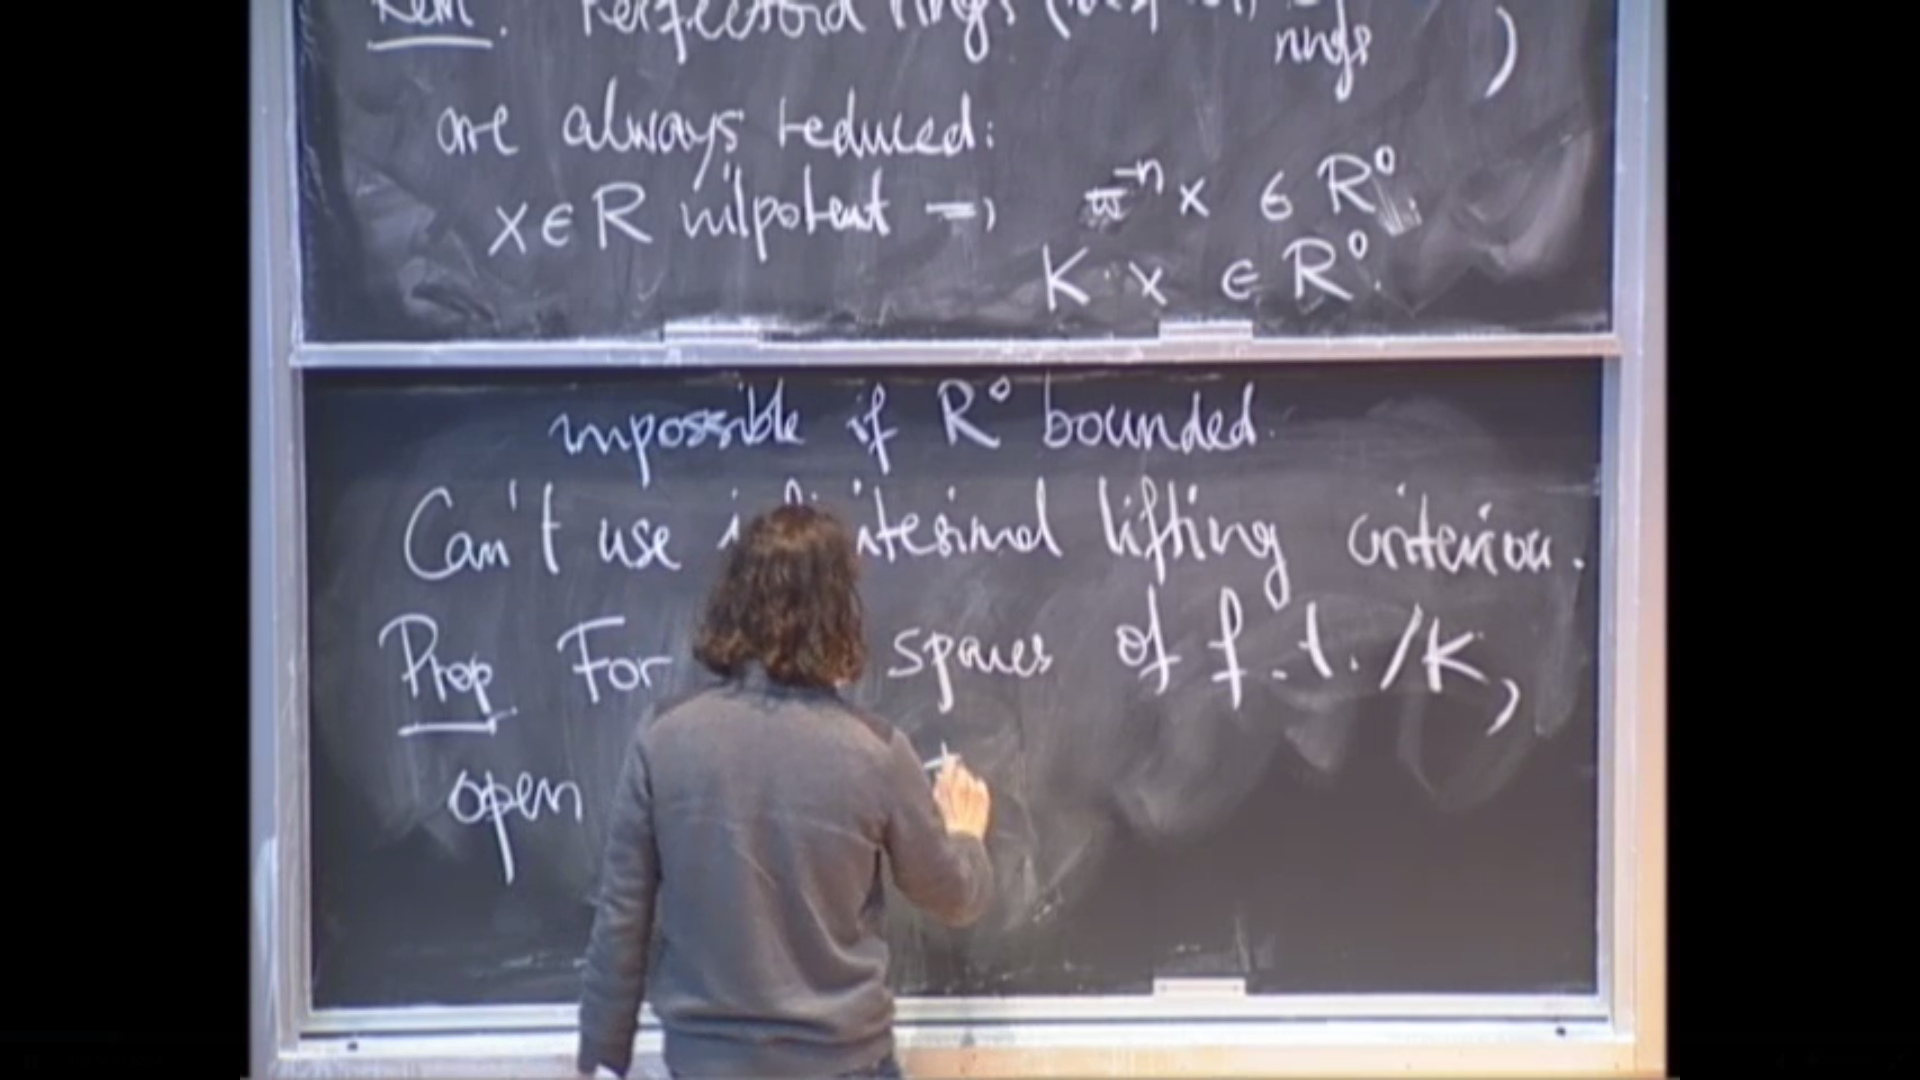 Rem. Perfectoid rings (
rings )
are always reduced:
x ∈ R nilpotent => ϖ^{-n} x ∈ R°.
K · x ∈ R°.
impossible if R° bounded.
Can't use lifting criterion.
Prop For spaces of f.t. /K,
open